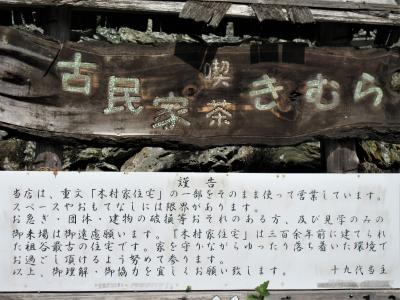 古民家 喫茶 きむら
謹 告
当店は、重文「木村家住宅」の一部をそのまま使って営業しています。
スペースやおもてなしには限界があります。
お急ぎ・団体・建物の破損等おそれのある方、及び見学のみの
御来場は御遠慮願います。『木村家住宅』は三百余年前に建てられ
た祖谷最古の住宅です。家を守りながらゆったり落ち着いた環境で
お過ごし頂けるよう努めて参ります。
以上、御理解・御協力を宜しくお願い致します。 十九代当主